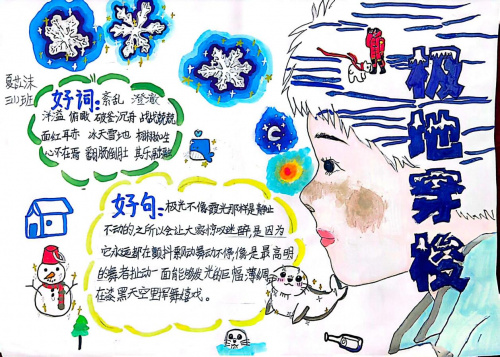 好词：紊乱 澄澈
洋溢 俯瞰 破釜沉舟 战战兢兢
面红耳赤 冰天雪地 栩栩如生
心不在焉 翻肠倒肚 其乐融融
好句：极光不像霞光那样是静止
不动的之所以会让大家惊叹迷醉是因为
它永远都在颤抖飘动舞动不停像是最高明
的舞者扯动一面能够发光的巨幅薄绸
在漆黑天空里挥舞嬉戏。
极地穿梭